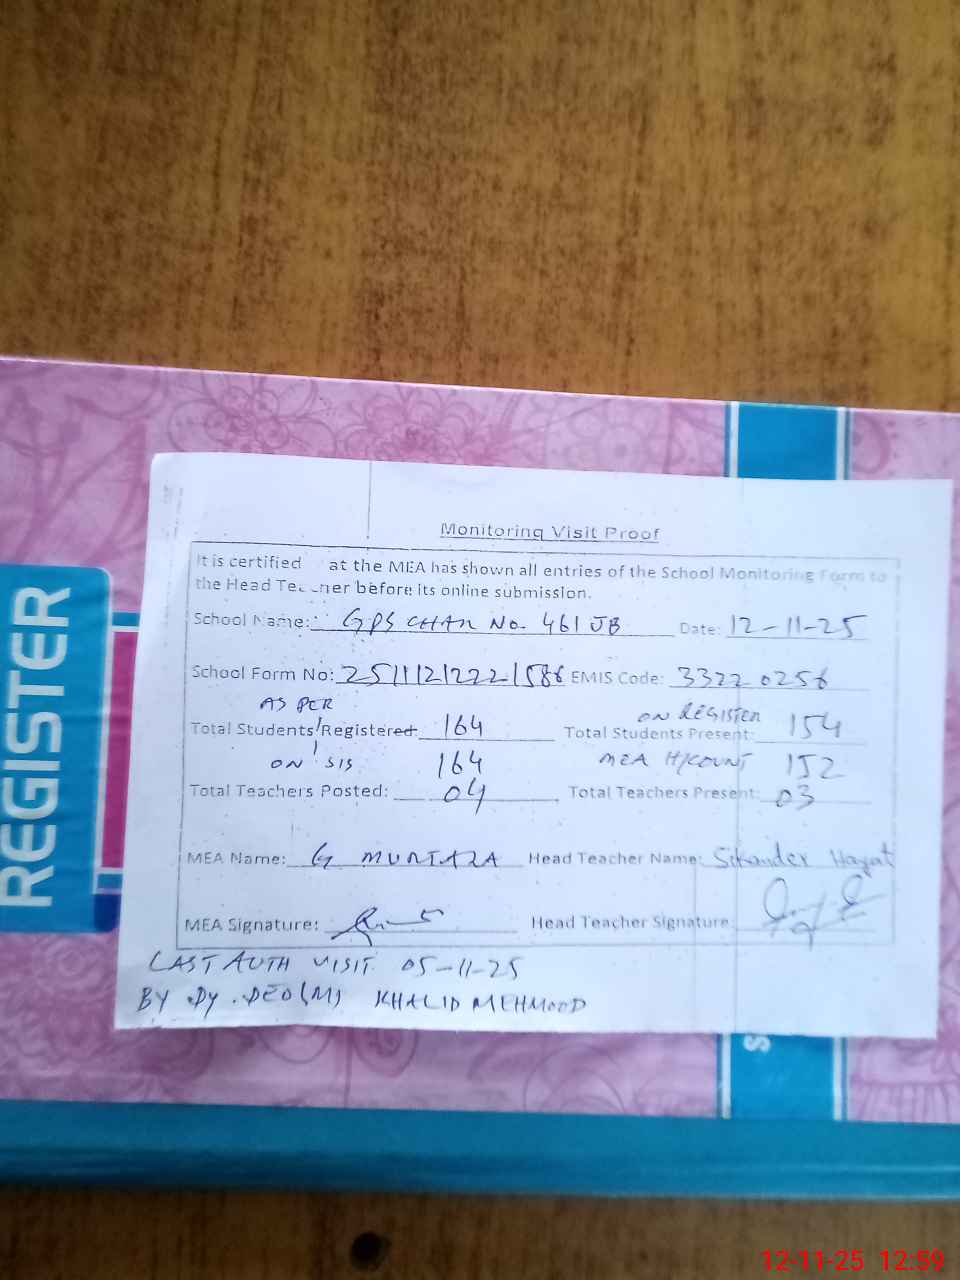 REGISTER
Monitoring Visit Proof
It is certified at the MEA has shown all entries of the School Monitoring Form to
the Head Teacher before its online submission.
School Name: GPS CHAK No. 461 JB Date: 12-11-25
School Form No: 25111212221586 EMIS Code: 33220256
AS PER ON REGISTER
Total Students Registered 164 Total Students Present: 154
ON SIS 164 MEA H/COUNT 152
Total Teachers Posted: 04 Total Teachers Present: 03
MEA Name: G MURTAZA Head Teacher Name: Sikander Hayat
MEA Signature: Head Teacher Signature:
LAST AUTH VISIT 05-11-25
BY .Dy .DEO(M) KHALID MEHMOOD
S
12-11-25 12:59